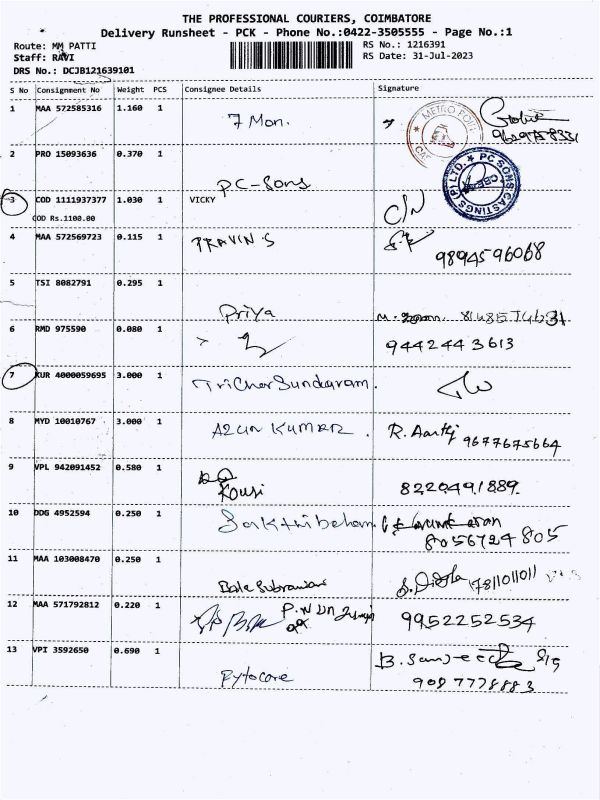 THE PROFESSIONAL COURIERS, COIMBATORE
Delivery Runsheet - PCK - Phone No.:0422-3505555 - Page No.:1
Route: MM PATTI
RS No.: 1216391
Staff: RAVI
RS Date: 31-Jul-2023
DRS No.: DCJB121639101
S No Consignment No Weight PCS Consignee Details Signature
1 MAA 572585316 1.160 1 7 Mon.
METRO
2 PRO 15093636 0.370 1 PC-Sons
PC SONS CASTINGS (P) LTD. CBE
3 COD 1111937377 1.030 1 VICKY
COD Rs.1100.00
4 MAA 572569723 0.115 1 PRAVIN.S 9894596068
5 TSI 8082791 0.295 1 Priya
6 RMD 975590 0.080 1 9442443613
7 KUR 4000059695 3.000 1
8 MYD 10010767 3.000 1 ARUN KUMAR. R. Aarthi 9677675664
9 VPL 942091452 0.580 1 Kousi 8220491889.
10 DDG 4952594 0.250 1 8056724805
11 MAA 103008470 0.250 1
12 MAA 571792812 0.220 1 9952252534
13 VPI 3592650 0.690 1 Fytocare B.